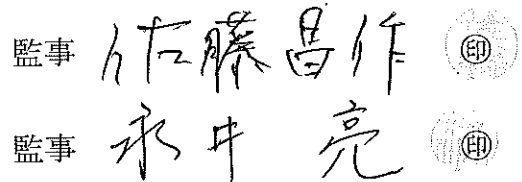 監事 佐藤昌作 ㊞
監事 永井 亮 ㊞